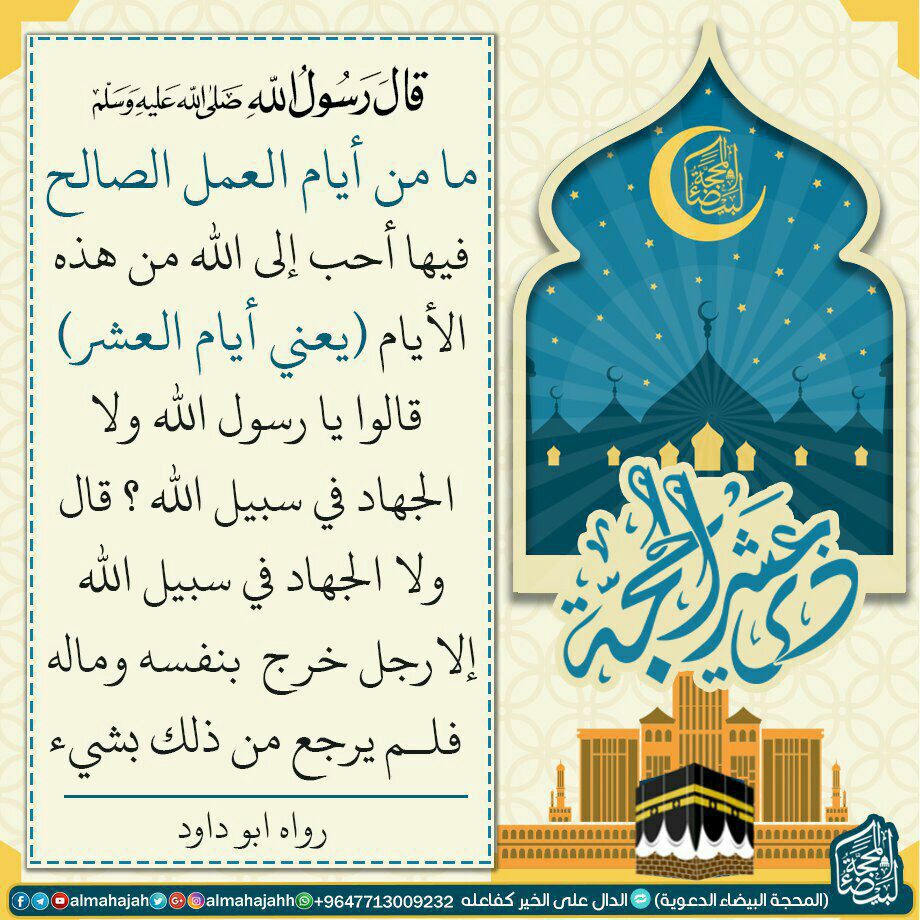 قال رسول الله صلى الله عليه وسلم
ما من أيام العمل الصالح
فيها أحب إلى الله من هذه
الأيام (يعني أيام العشر)
قالوا يا رسول الله ولا
الجهاد في سبيل الله ؟ قال
ولا الجهاد في سبيل الله
إلا رجل خرج بنفسه وماله
فلم يرجع من ذلك بشيء
رواه ابو داود
المحجة البيضاء
عشر ذي الحجة
المحجة البيضاء
(المحجة البيضاء الدعوية) الدال على الخير كفاعله +9647713009232 almahajahh almahajah